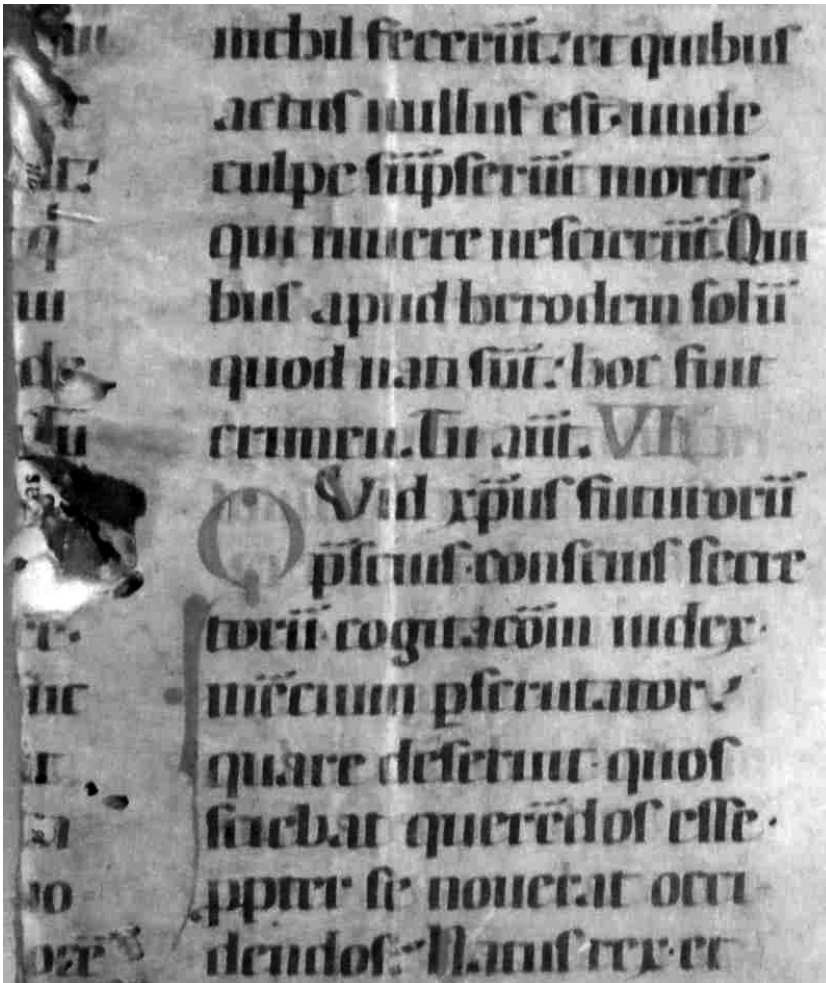 nichil fecerūt: et quibuſ
actuſ nulluſ eſt. unde
culpe sūpſerūt mortē
qui niuere neſcierūt. Qui
buſ apud herodem ſolū
quod nati sūt: hoc fuit
crimen. Tu aūt. VII
QVid xp̄uſ futurorū
p̄ſciuſ. conſciuſ ſecre
torū. cogitacōm iudex.
mēcium pſcrutator.
quare deſeruit. quoſ
ſciebat querēdoſ eſſe.
ppter ſe nouerat occi
dendoſ. Natuſ rex. et